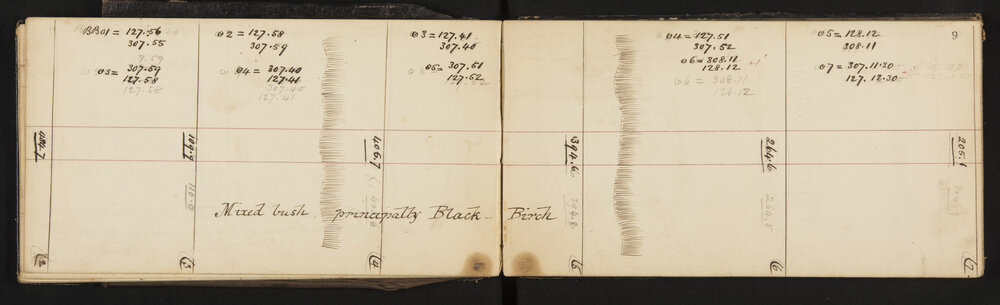 BB01 = 127.56
307.55
7.59
03 = 307.59
127.58
127.58
02 = 127.58
307.59
04 = 307.40
127.41
307.40
127.41
03 = 127.41
307.40
05 = 307.51
127.52
04 = 127.51
307.52
06 = 308.11
128.12
06 = 308.11
128.12
05 = 128.12
308.11
07 = 307.11.30
127.12.30
9
109.9
118.0
406.7
394.6
394.8
264.6
205.1
Mixed bush principally Black Birch
2
3
4
5
6
7